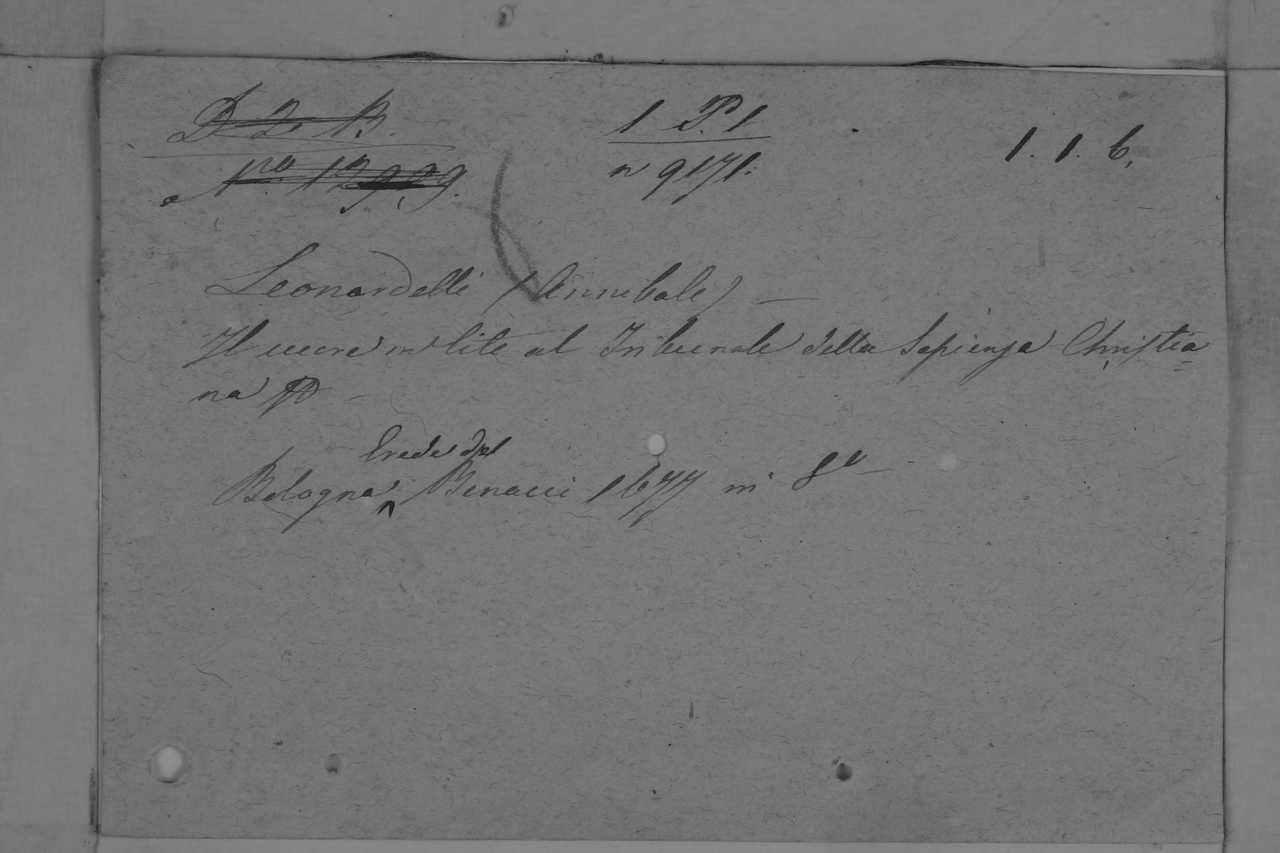 D. 2. B. 1 P. 1 1. 1. 6.
Nro. n 9171.
Leonardelli (Annibale) —
Il cuore in lite al Tribunale della Sapienza Christia=
na —
Erede del
Bologna, Benacci 1677 in 8º